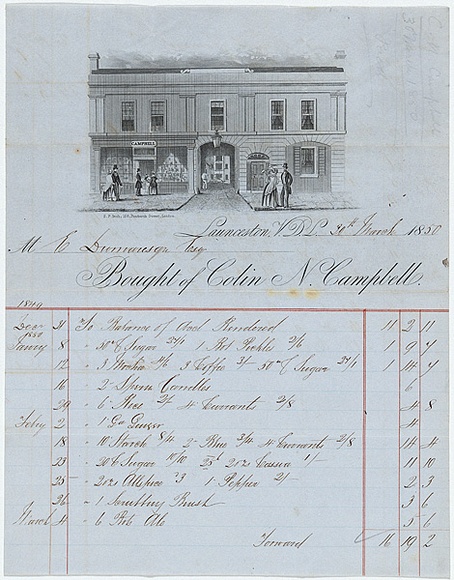 CAMPBELL
Launceston, V.D.L. 30th March 1850
M E Dumaresq Esq
Bought of Colin N. Campbell.
1849
Decr 31 To Balance of acct Rendered 11 2 11
1850
Janry 8 " 30 lb Sugar 1 Bot Pickle 2/6 1 9 7
12 " 3 Mocha 3 Coffee 30 lb Sugar 1 14 7
16 " 2 Sperm Candles 6
29 " 6 Rice 2/ 4 Currants 2/8 4 8
Feby 2 " 1 Ginger 4
18 " 10 Starch 8/4 2 Blue 3/4 4 Currants 2/8 14 4
23 " 20 lb Sugar 10/10 2 oz Cassia 1/- 11 10
25 " 2 oz Allspice 3 1 Pepper 2/- 2 3
26 " 1 Scrubbing Brush 3 6
March 4 " 6 Bot Ale 5 6
Forward 16 19 2